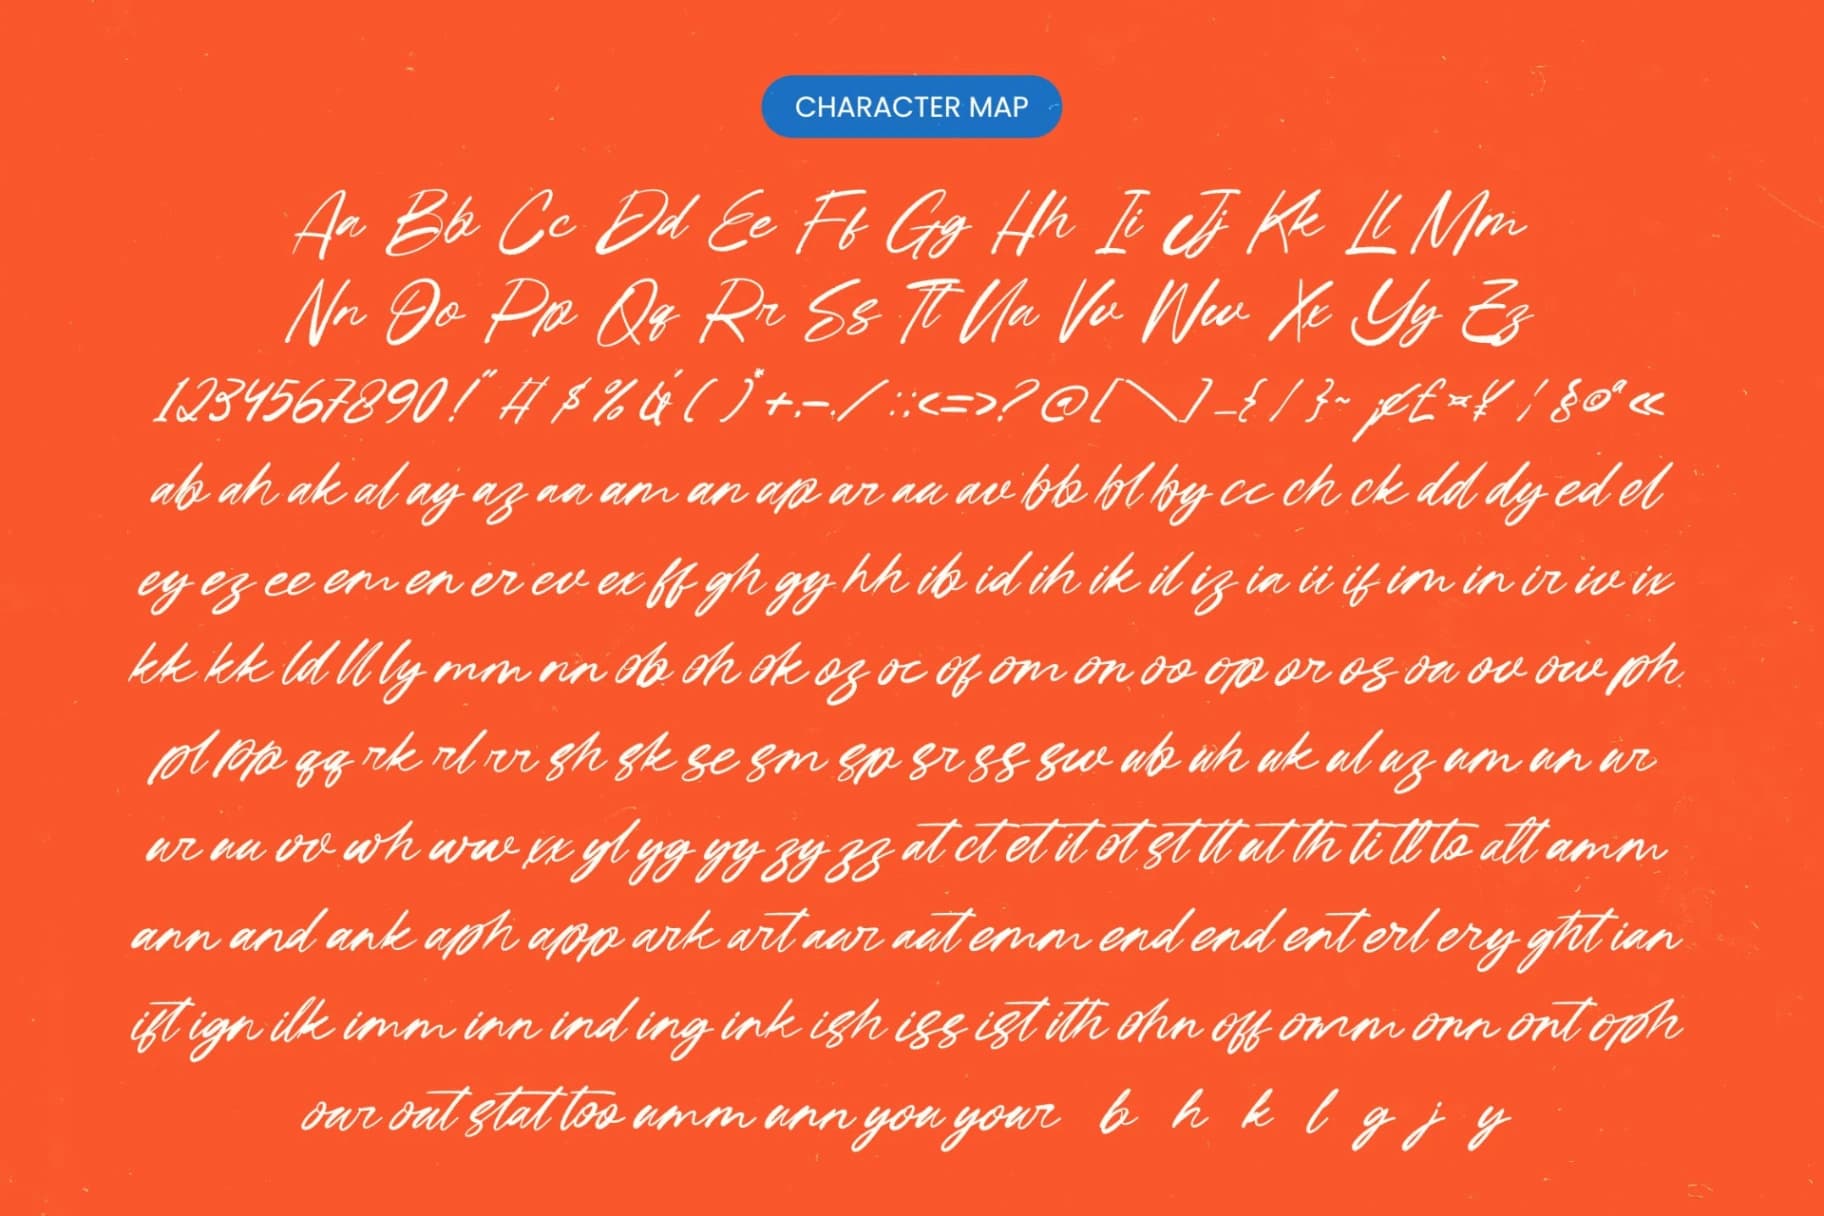 CHARACTER MAP
Aa Bb Cc Dd Ee Ff Gg Hh Ii Jj Kk Ll Mm
Nn Oo Pp Qq Rr Ss Tt Uu Vv Ww Xx Yy Zz
1234567890!" # $ % & ' ( ) * + , - . / : ; < = > ? @ [ \ ] _ { | } ~ ¡ ¢ £ ¤ ¥ ¦ § © ª «
ab ah ak al ay az aa am an ap ar au av bb bl by cc ch ck dd dy ed el
ey ez ee em en er ev ex ff gh gy hh ib id ih ik il iz ia ii if im in ir iv ix
kk kk ld ll ly mm nn ob oh ok oz oc of om on oo op or os ou ov ow ph
pl pp qq rk rl rr sh sk se sm sp sr ss sw ub uh uk ul uz um un ur
ur uu vv wh ww xx yl yg yy zy zz at ct et it ot st tt ut th ti tl to alt amm
ann and ank aph app ark art aur aut emm end end ent erl ery ght ian
ift ign ilk imm inn ind ing ink ish iss ist ith ohn off omm onn ont oph
our out stat too umm unn you your b h k l g j y